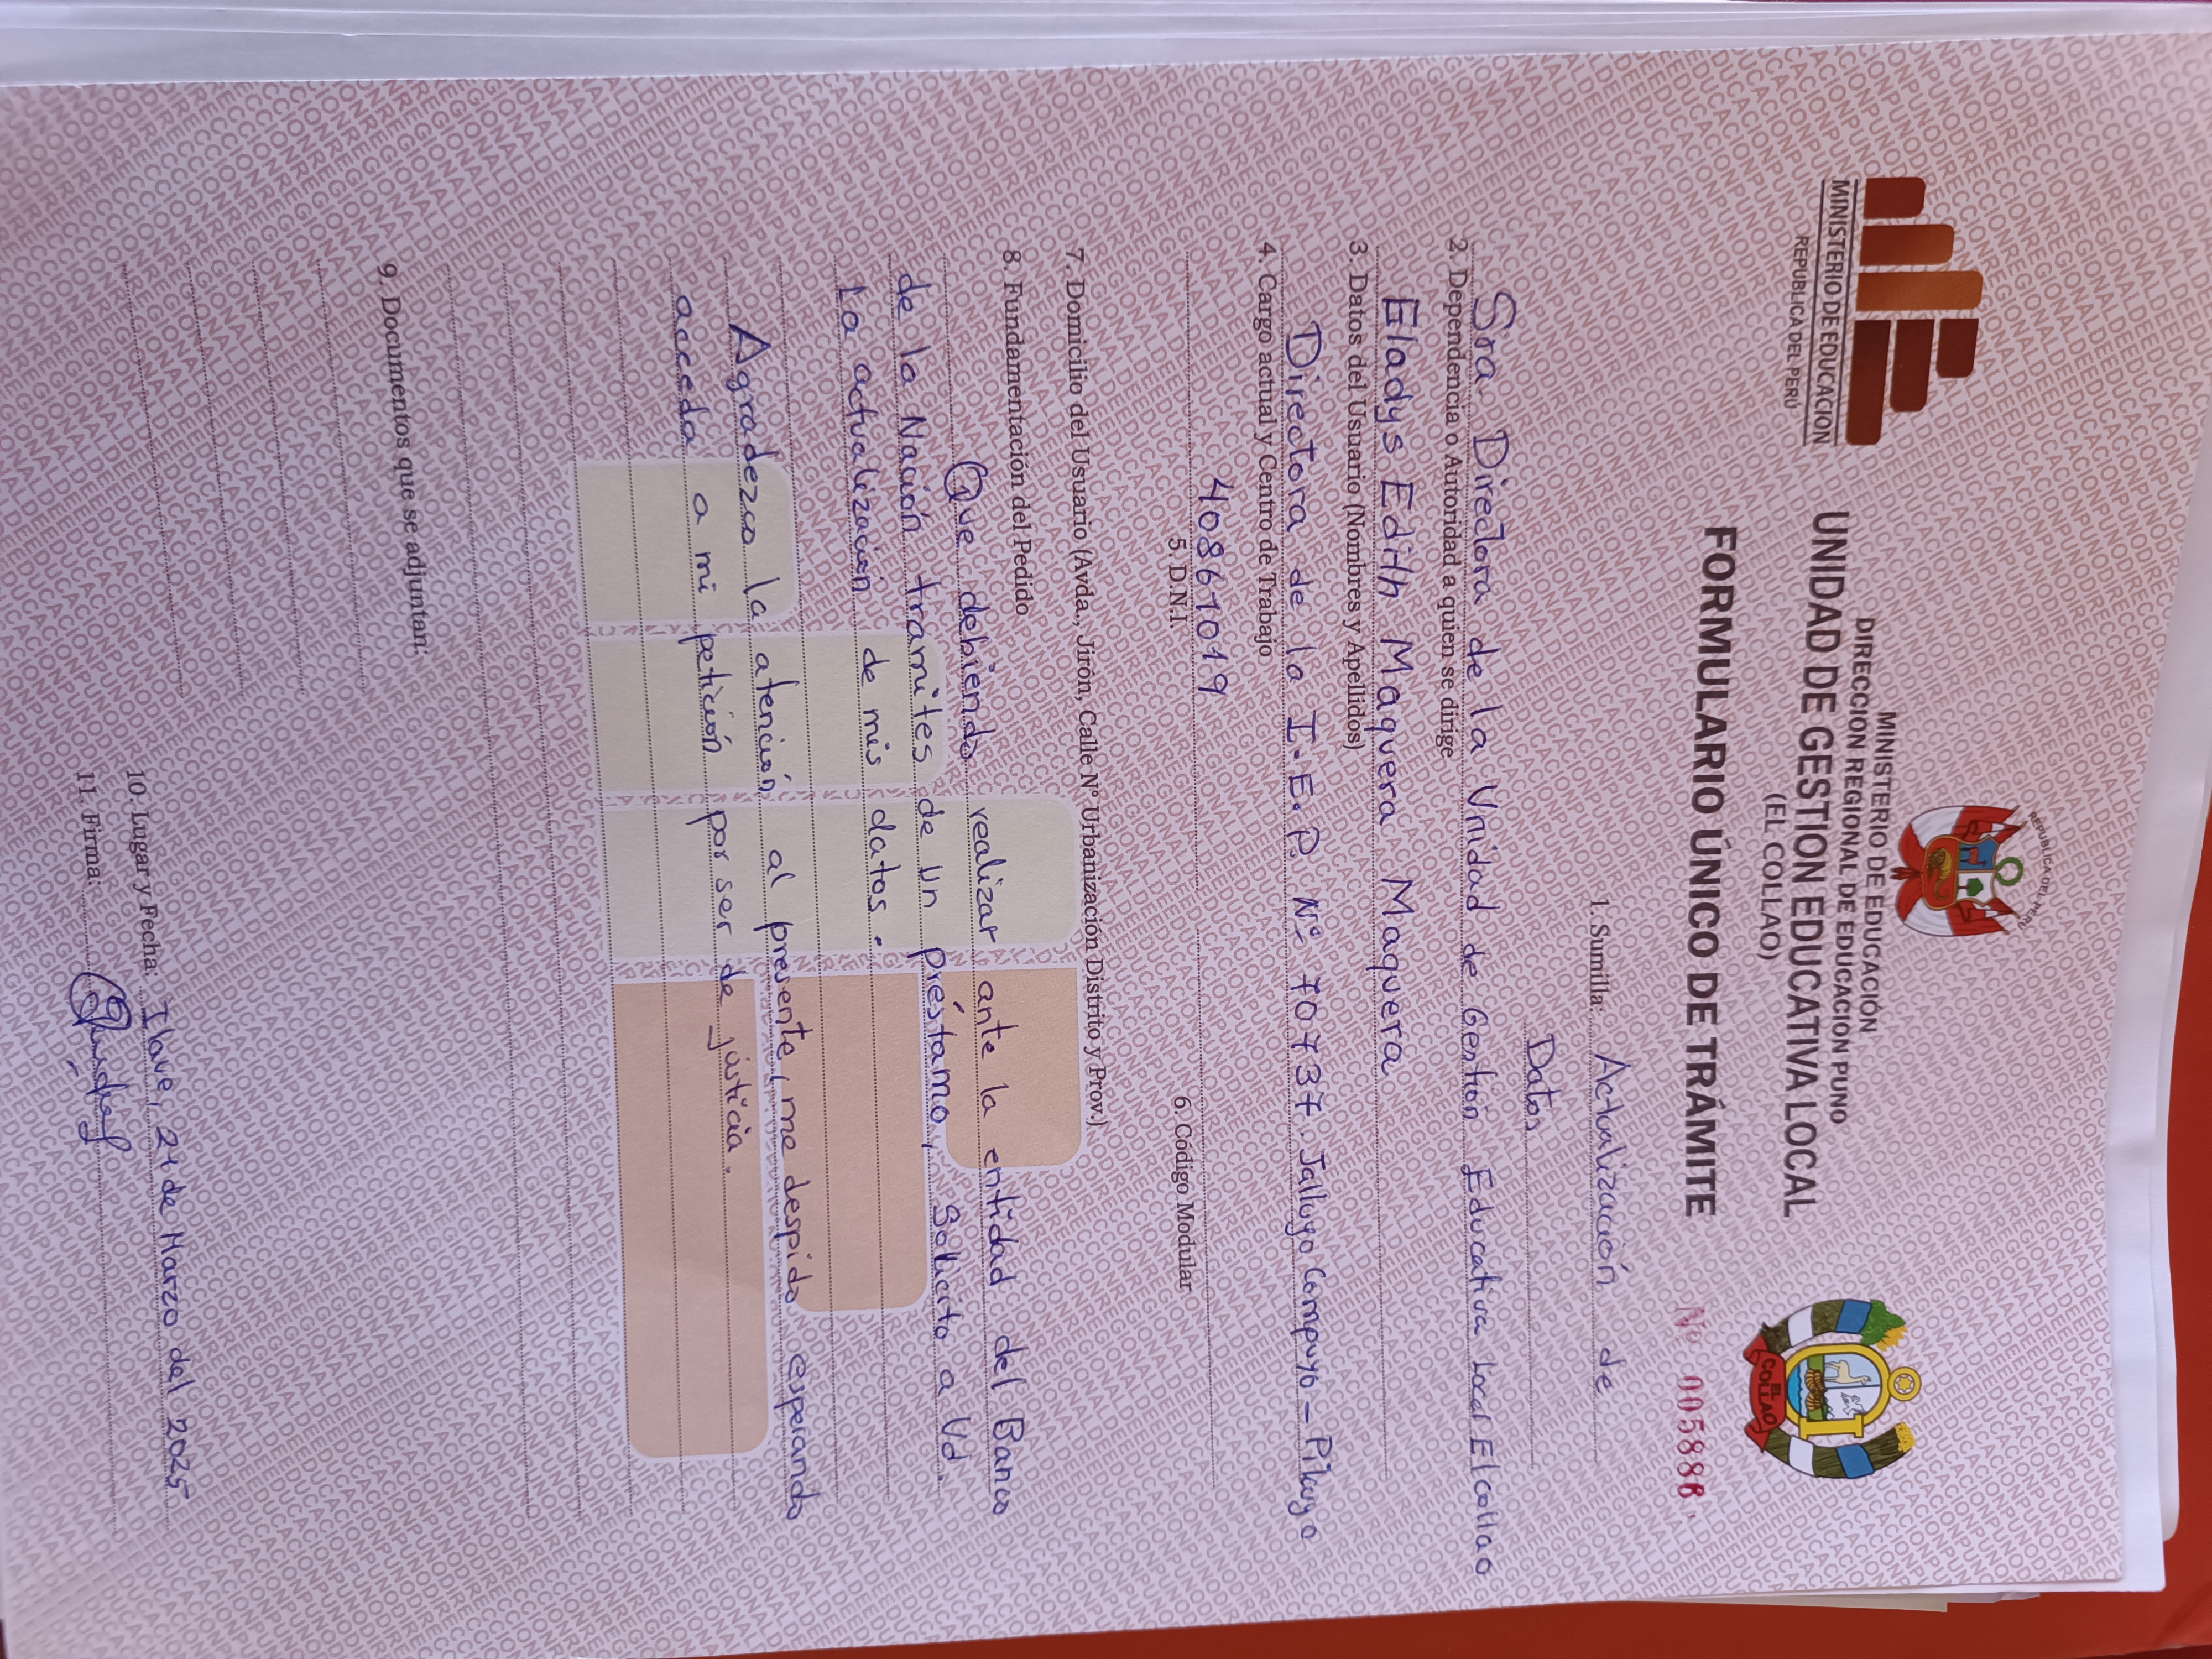 MINISTERIO DE EDUCACION
REPUBLICA DEL PERÚ
REPUBLICA DEL PERÚ
MINISTERIO DE EDUCACIÓN
DIRECCION REGIONAL DE EDUCACION PUNO
UNIDAD DE GESTION EDUCATIVA LOCAL
(EL COLLAO)
FORMULARIO ÚNICO DE TRÁMITE
EL COLLAO
Nº 005888
1.Sumilla: Actualización de
Datos
Sra Directora de la Unidad de Gestión Educativa Local El collao
2. Dependencia o Autoridad a quien se dirige
Eladys Edith Maquera Maquera
3. Datos del Usuario (Nombres y Apellidos)
Directora de la I.E.P. Nº 70737. Jalluyo Campuyo - Pilcuyo
4. Cargo actual y Centro de Trabajo
40861019
5. D.N.I.
6. Código Modular
7. Domicilio del Usuario (Avda., Jirón, Calle Nº Urbanización Distrito y Prov.)
8. Fundamentación del Pedido
Que debiendo realizar ante la entidad del Banco
de la Nación tramites de un préstamo, Solicito a Ud.
La actualización de mis datos.
Agradezco la atención al presente, me despido esperando
acceda a mi petición por ser de justicia.
9. Documentos que se adjuntan:
10. Lugar y Fecha: Ilave, 21 de Marzo del 2025
11. Firma: